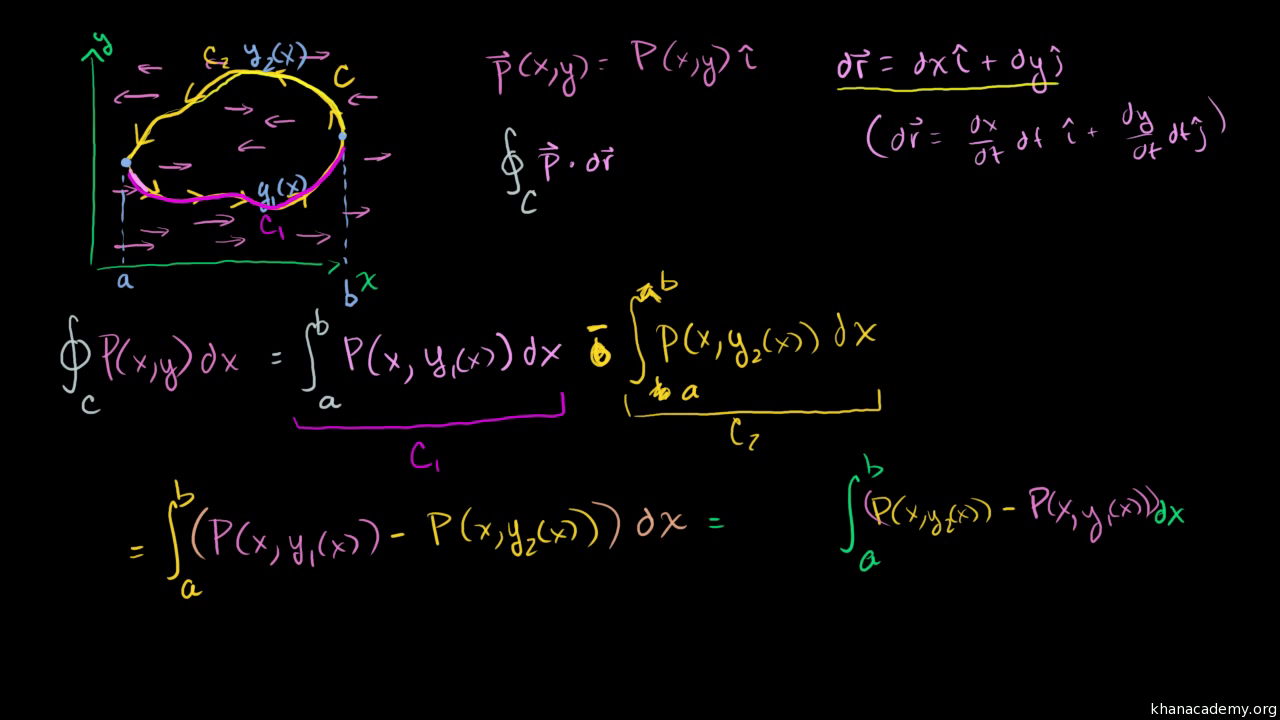 y
C₂ y₂(x)
C
y₁(x)
C₁
a b x
p⃗(x,y) = P(x,y) î
∮_C p⃗ · dr⃗
dr⃗ = dx î + dy ĵ
(dr⃗ = dx/dt dt î + dy/dt dt ĵ)
∮_C P(x,y) dx = ∫_a^b P(x, y₁(x)) dx - ∫_a^b P(x, y₂(x)) dx
C₁ C₂
= ∫_a^b (P(x, y₁(x)) - P(x, y₂(x))) dx = ∫_a^b (P(x, y₂(x)) - P(x, y₁(x))) dx
khanacademy.org